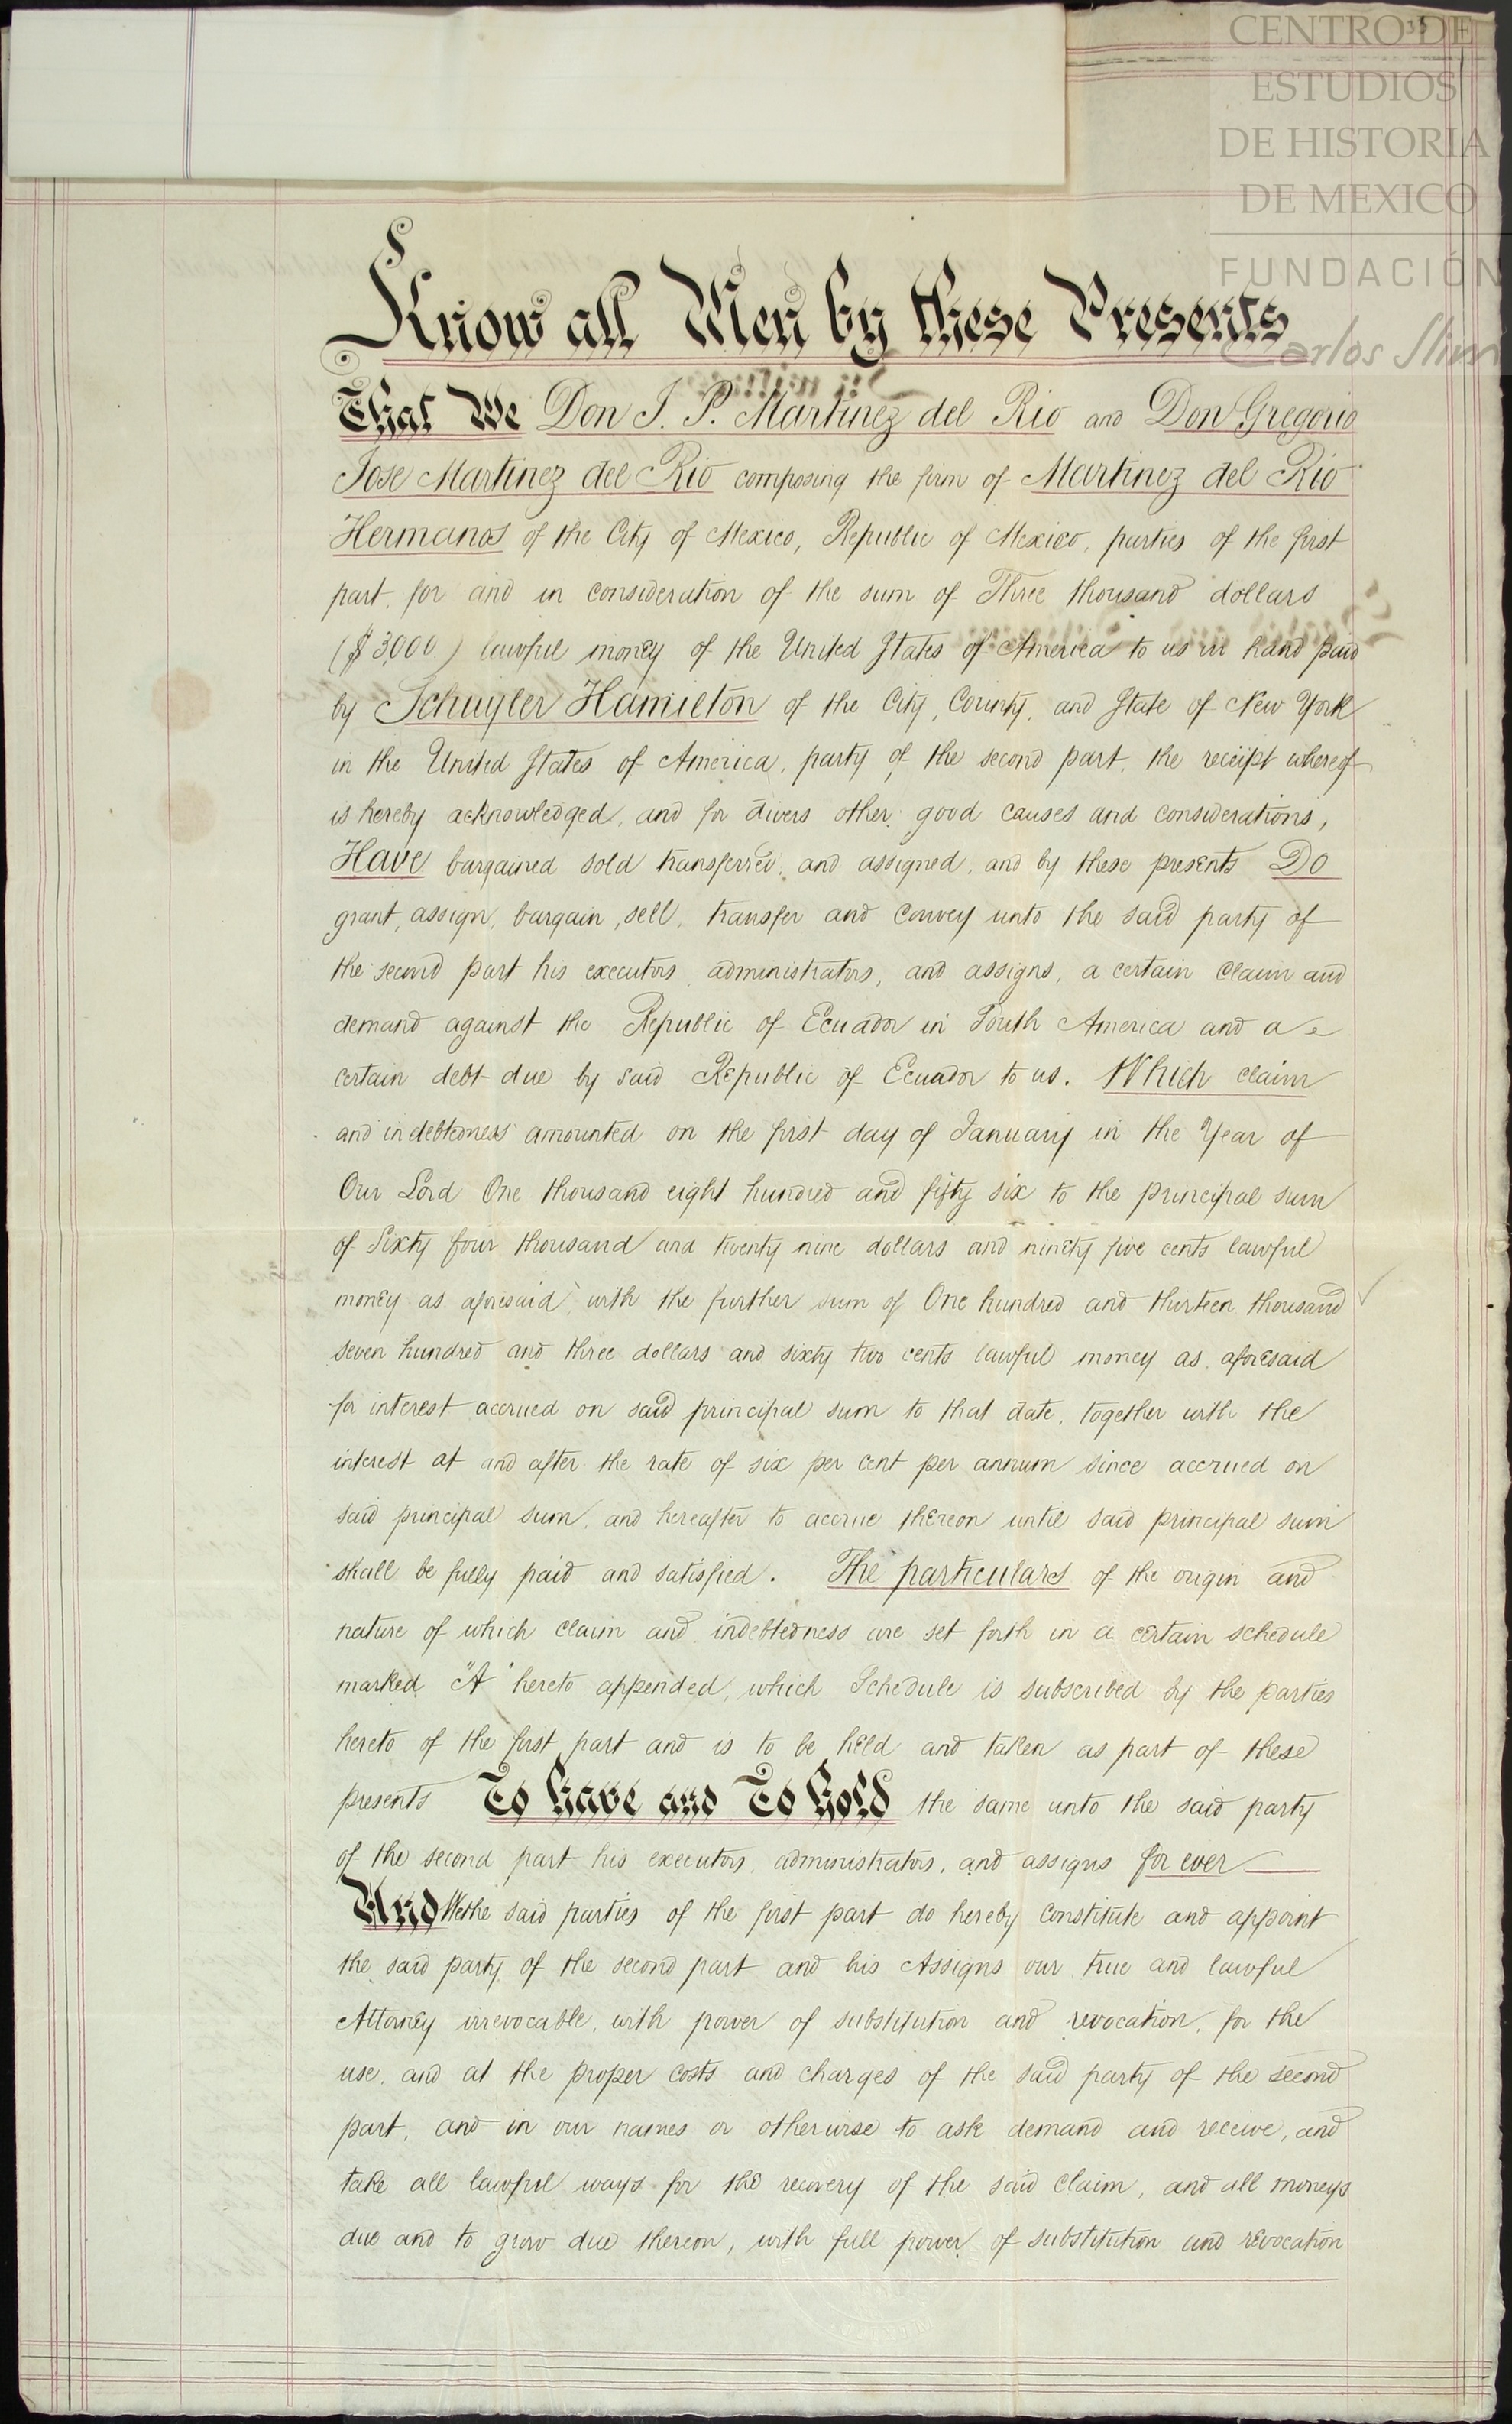 35
CENTRO DE
ESTUDIOS
DE HISTORIA
DE MEXICO
FUNDACIÓN
Carlos Slim
Know all Men by these Presents
That We Don J. P. Martinez del Rio and Don Gregorio
Jose Martinez del Rio composing the firm of Martinez del Rio
Hermanos of the City of Mexico, Republic of Mexico, parties of the first
part, for and in consideration of the sum of Three thousand dollars
($3000) lawful money of the United States of America to us in hand paid
by Schuyler Hamilton of the City, County, and State of New York
in the United States of America, party of the second part, the receipt whereof
is hereby acknowledged, and for divers other good causes and considerations,
Have bargained sold transferred, and assigned, and by these presents Do
grant, assign, bargain, sell, transfer and convey unto the said party of
the second part his executors, administrators, and assigns, a certain claim and
demand against the Republic of Ecuador in South America and a
certain debt due by said Republic of Ecuador to us. Which claim
and indebtedness amounted on the first day of January in the Year of
Our Lord One thousand eight hundred and fifty six to the principal sum
of Sixty four thousand and twenty nine dollars and ninety five cents lawful
money as aforesaid, with the further sum of One hundred and thirteen thousand
seven hundred and three dollars and sixty two cents lawful money as aforesaid
for interest accrued on said principal sum to that date, together with the
interest at and after the rate of six per cent per annum since accrued on
said principal sum, and hereafter to accrue thereon until said principal sum
shall be fully paid and satisfied. The particulars of the origin and
nature of which claim and indebtedness are set forth in a certain schedule
marked "A" hereto appended, which Schedule is subscribed by the parties
hereto of the first part and is to be held and taken as part of these
presents To have and To hold the same unto the said party
of the second part his executors, administrators, and assigns for ever
And We the said parties of the first part do hereby constitute and appoint
the said party of the second part and his Assigns our true and lawful
Attorney irrevocable, with power of substitution and revocation, for the
use, and at the proper costs and charges of the said party of the second
part, and in our names or otherwise to ask demand and receive, and
take all lawful ways for the recovery of the said claim, and all moneys
due and to grow due thereon, with full power of substitution and revocation